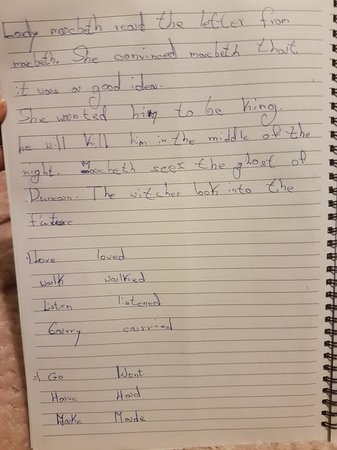 Lady macbeth read the letter from
macbeth. She convinced macbeth that
it was a good idea.
She wanted him to be king.
he will kill him in the middle of the
night. Macbeth sees the ghost of
Duncan. The witches look into the
future
1) Love loved
walk walked
Listen listened
Carry carried
2) Go Went
Have Had
Make Made